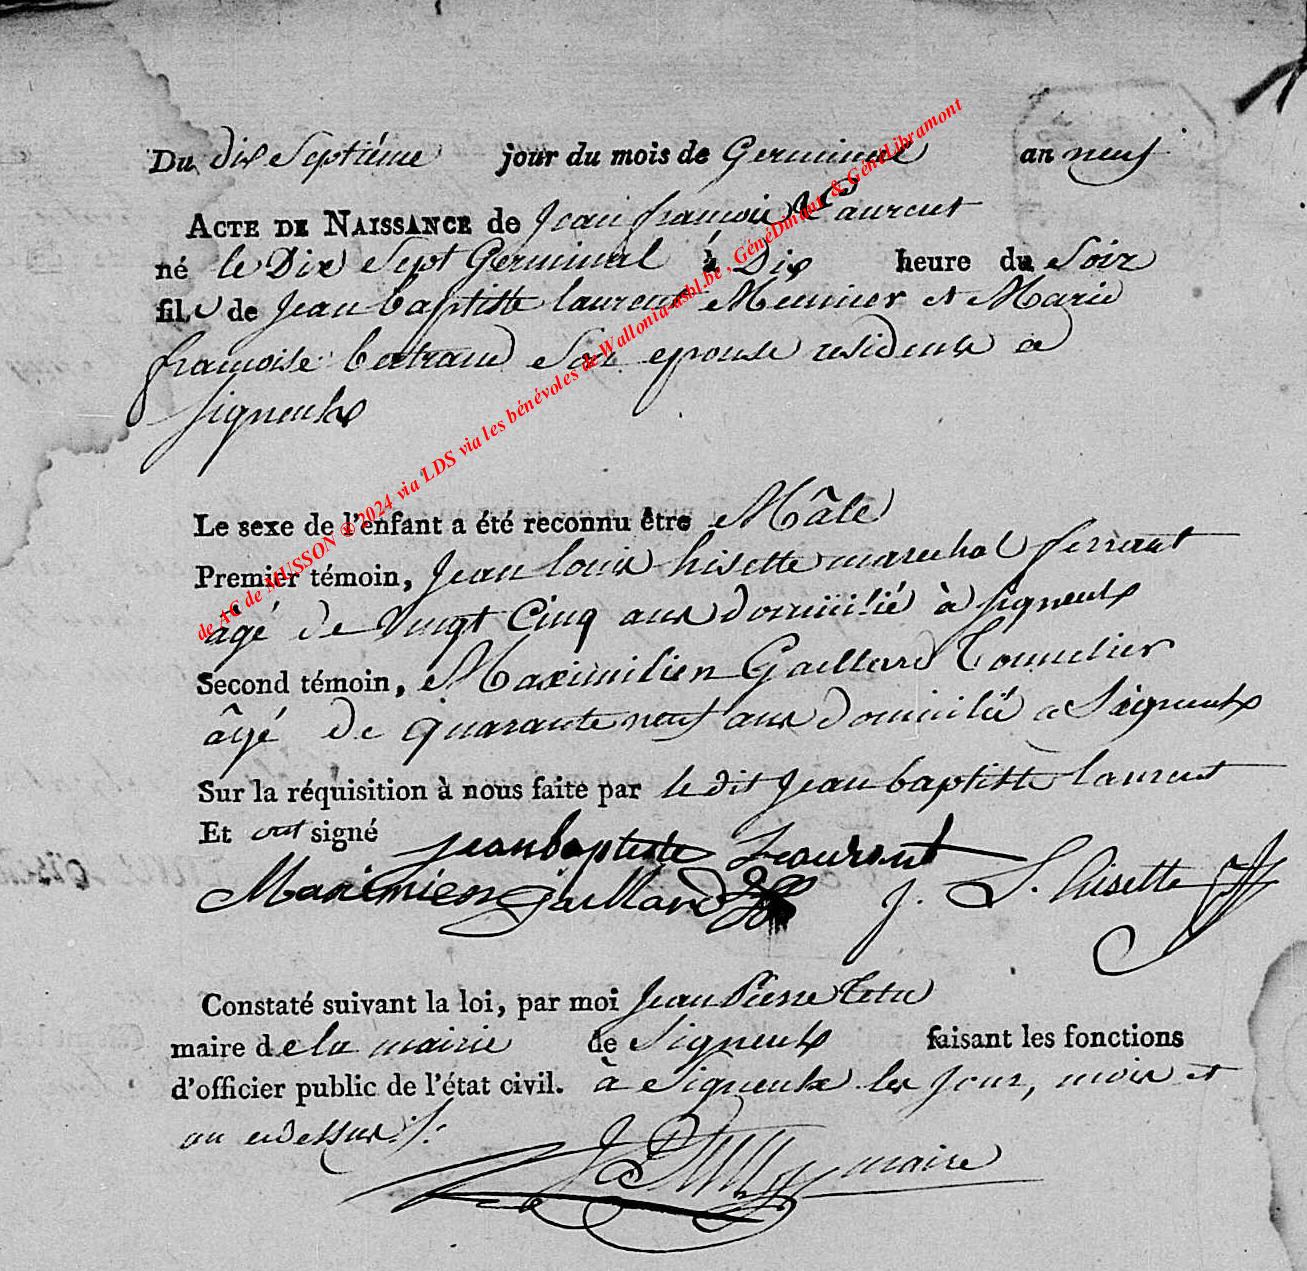 Du dix Septiéme jour du mois de Germinal an neuf
ACTE DE NAISSANCE de Jean françois Laurent
né le Dix Sept Germinal à Dix heure du Soir
fils de Jean baptiste laurent Meunier et Marie
françoise bertrand son epouse residents a
signeulx
Le sexe de l'enfant a été reconnu être Mâle
Premier témoin, Jean louis hisette marechal ferrant
âgé de vingt Cinq ans domicilié à signeulx
Second témoin, Maximilien Gaillard Tonnelier
âgé de quarante neuf ans domicilié a Signeulx
Sur la réquisition à nous faite par le dit Jean baptiste laurent
Et ont signé
jean baptiste Laurent
Maximien gaillard J. L. hisette
Constaté suivant la loi, par moi Jean Pierre Tetu
maire de la mairie de Signeulx faisant les fonctions
d'officier public de l'état civil. à Signeulx les jour, mois et
an et dessus ./.
maire
de AC de MUSSON © 2024 via LDS via les bénévoles de Wallonia-asbl.be , GénéDinant & GénéLibramont